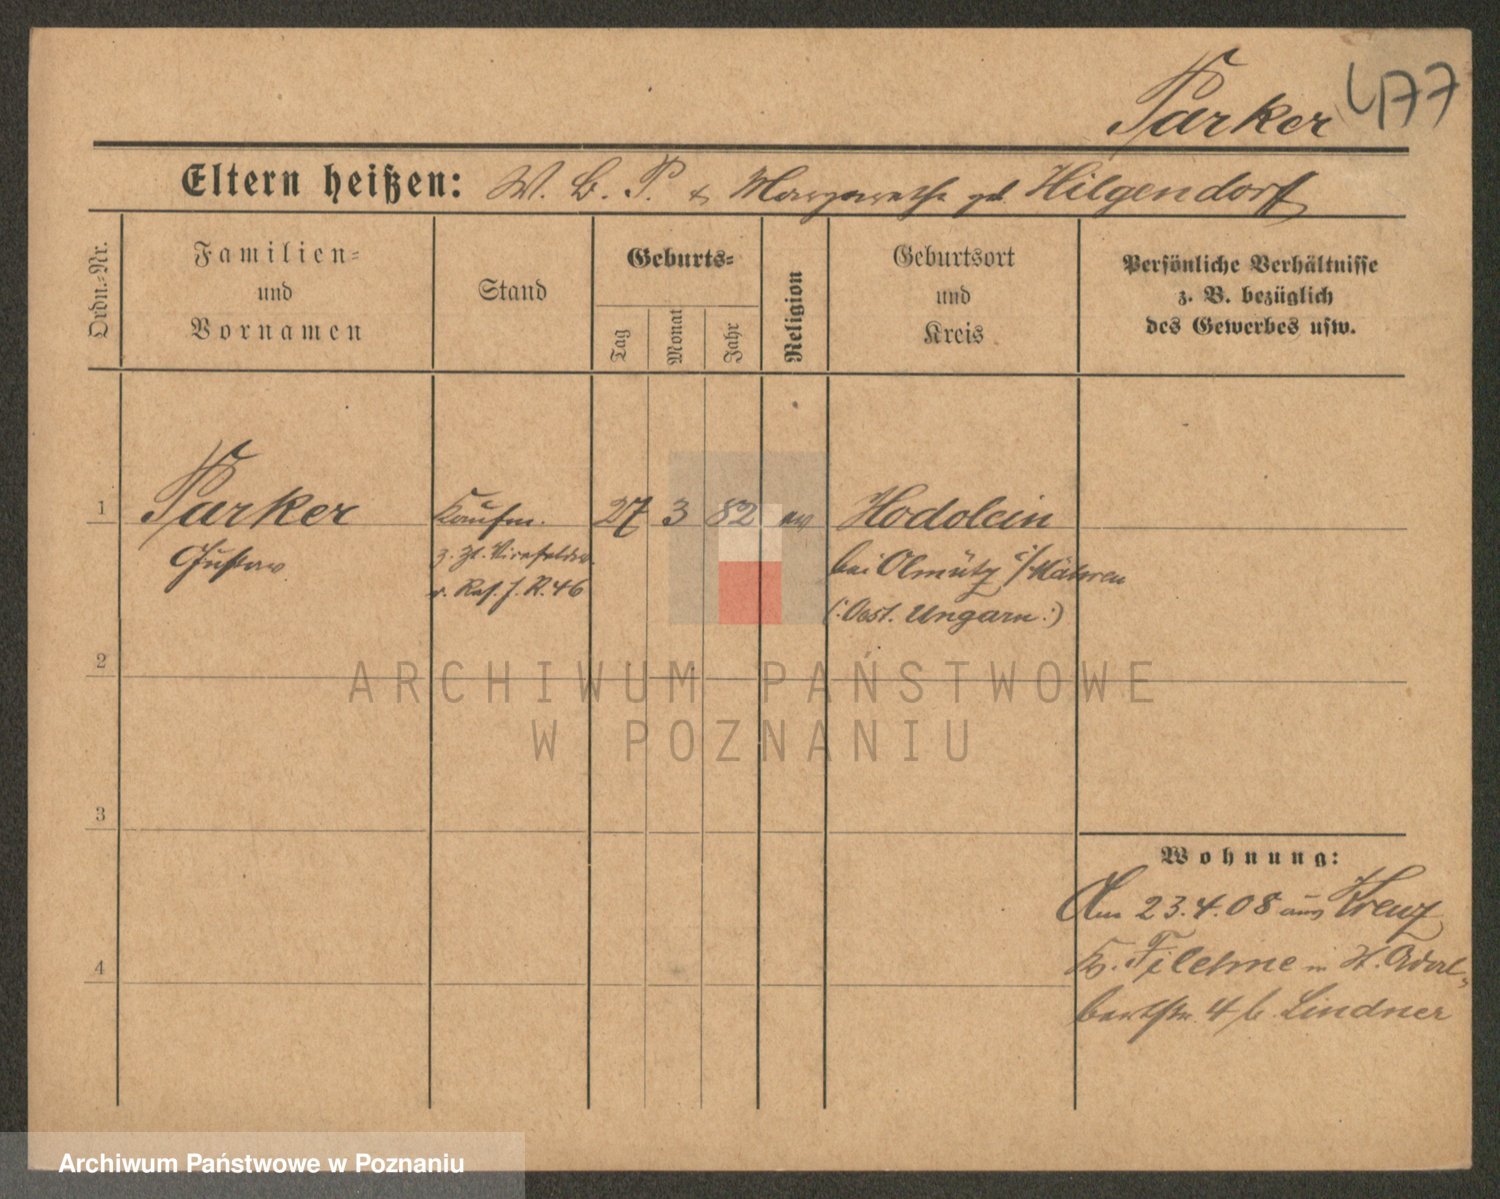 Parker 477
Eltern heißen: W. B. P. & Margarethe geb. Hilgendorf
Ordn.-Nr.
Familien-
und
Vornamen
Stand
Geburts-
Tag
Monat
Jahr
Religion
Geburtsort
und
Kreis
Persönliche Verhältnisse
z. B. bezüglich
des Gewerbes usw.
1 Parker Kaufm. 27 3 82 ev Hodolein
Gustav z. Zt. Vizefeldw. bei Olmütz i/Mähren
d. Res. J. R. 46 (: Oest. Ungarn :)
ARCHIWUM PAŃSTWOWE
W POZNANIU
2
3
Wohnung:
Am 23.4.08 aus Kreuz
Kr. Filehne in St. Adal-
4
bertstr. 4 b. Lindner
Archiwum Państwowe w Poznaniu